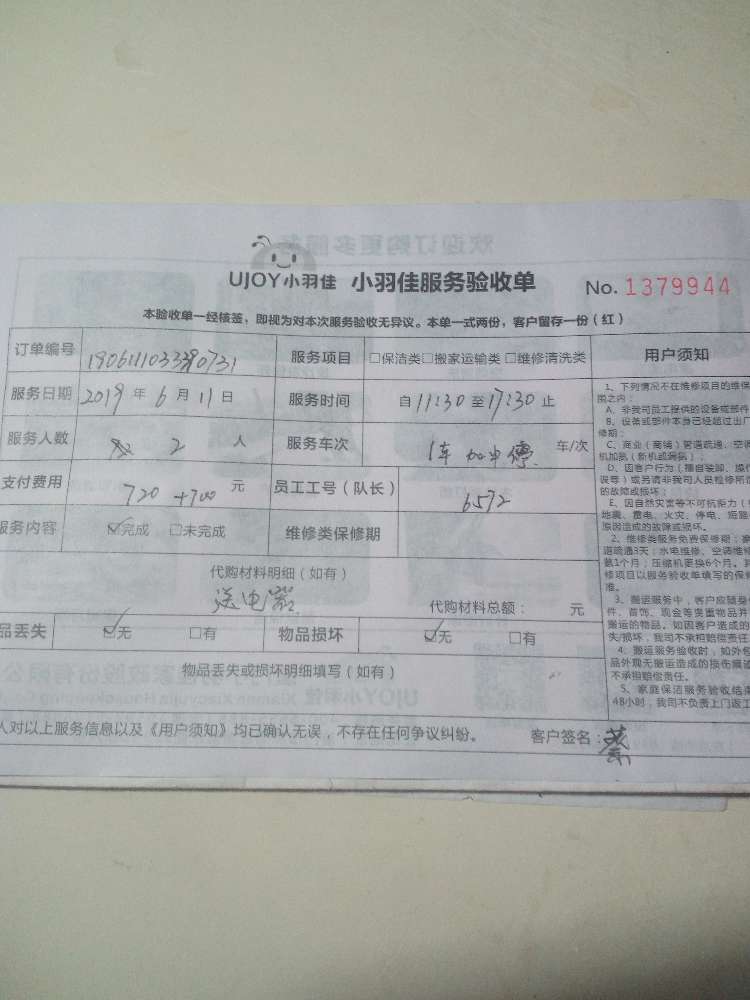 UJOY小羽佳 小羽佳服务验收单 No. 1379944
本验收单一经核签，即视为对本次服务验收无异议。本单一式两份，客户留存一份（红）
订单编号 服务项目 □保洁类□搬家运输类□维修清洗类 用户须知
服务日期 2019 年 6 月 11 日 服务时间 自 11:30 至 17:30 止
服务人数 2 人 服务车次 1车 车/次
支付费用 720 +700 元 员工工号（队长） 6572
服务内容 ☑完成 □未完成 维修类保修期
代购材料明细（如有）
送电器 代购材料总额： 元
品丢失 ☑无 □有 物品损坏 ☑无 □有
物品丢失或损坏明细填写（如有）
人对以上服务信息以及《用户须知》均已确认无误，不存在任何争议纠纷。 客户签名：
1、下列情况不在维修项目的维保
围之内：
A、非我司员工提供的设备或部件
B、设备或部件本身已经超过出厂
修期；
C、商业（商铺）管道疏通、空调
机加氨（新机或漏氨）；
D、因客户行为（擅自装卸、操作
误等）或另请非我司人员检修所造
的故障或损坏；
E、因自然灾害等不可抗拒力（
地震、雷电、火灾、停电、短路
原因造成的故障或损坏。
2、维修类服务免费保修期：
道疏通3天；水电维修、空调维修
氨1个月；压缩机更换6个月。
修项目以服务验收单填写的保修
准。
3、搬运服务中，客户应随身
件、首饰、现金等贵重物品并
搬运的物品。如因客户造成的
失/损坏，我司不承担赔偿责任
4、搬运服务验收时，如外包
品外观无搬运造成的损伤痕迹
不承担赔偿责任。
5、家庭保洁服务验收结束
48小时，我司不负责上门返工